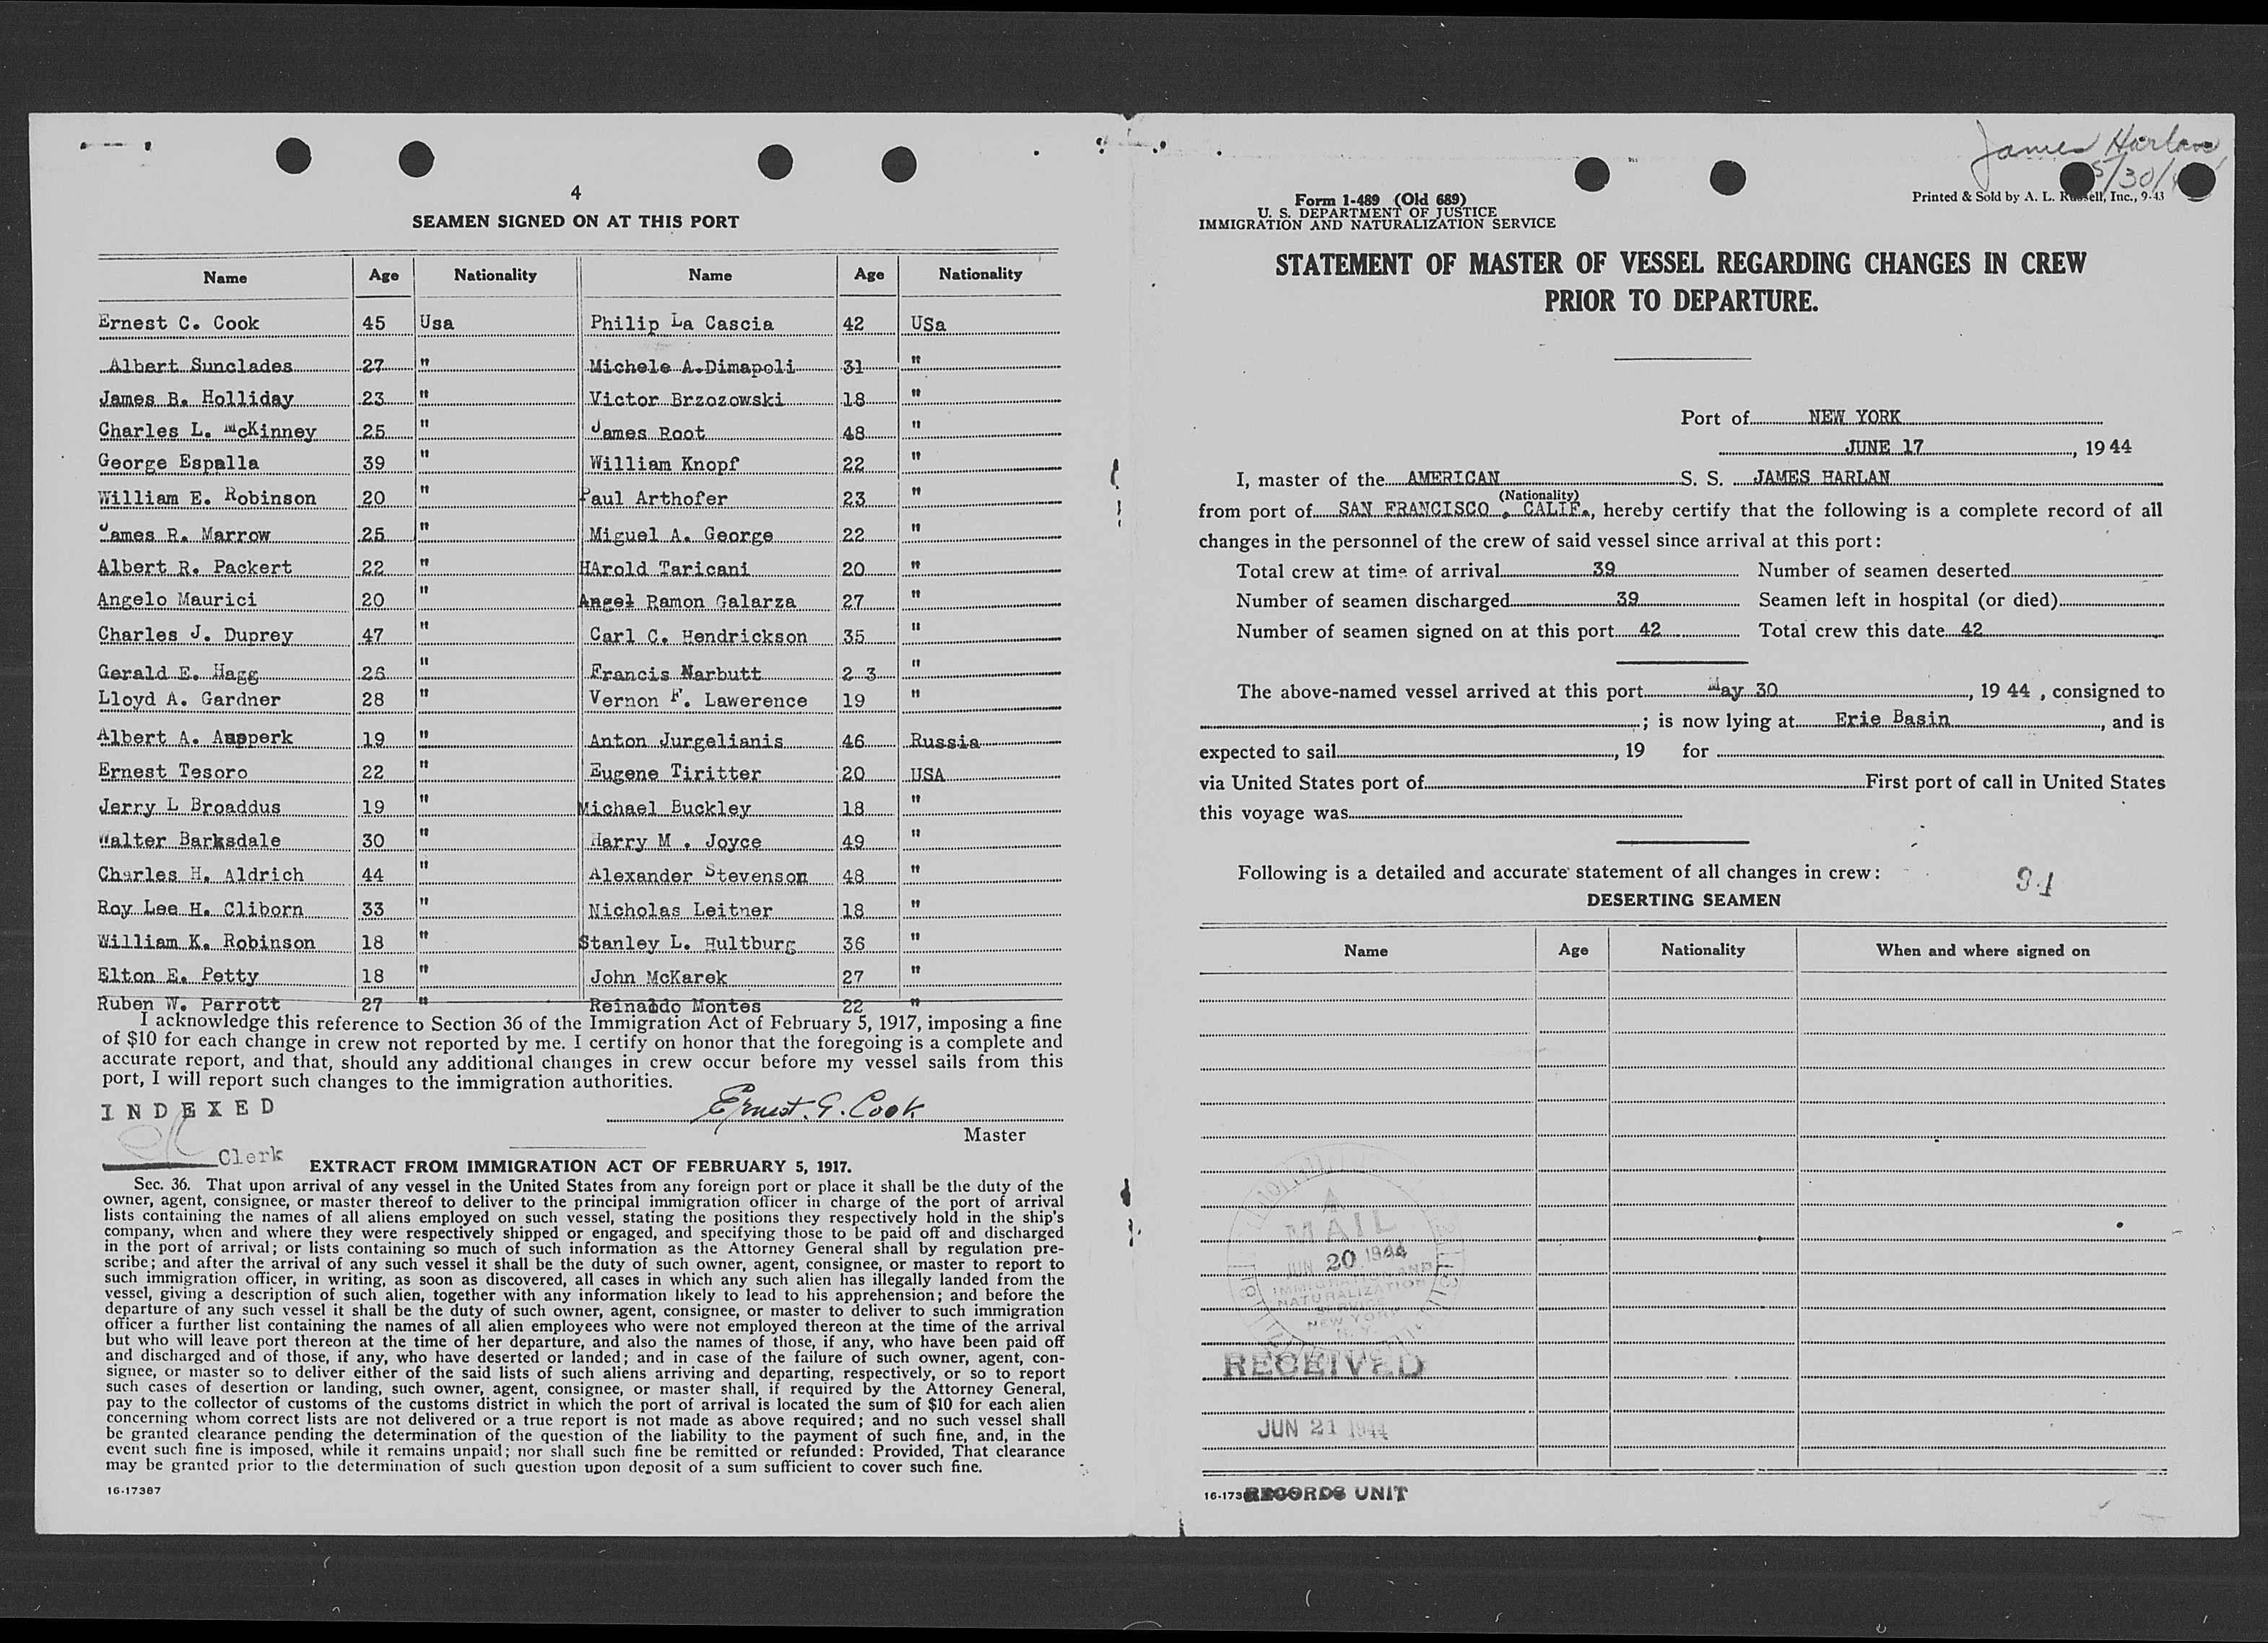 4
SEAMEN SIGNED ON AT THIS PORT
Name Age Nationality Name Age Nationality
Ernest C. Cook 45 Usa Philip La Cascia 42 USa
Albert Sunclades 27 " Michele A.Dimapoli 31 "
James B. Holliday 23 " Victor Brzozowski 18 "
Charles L. McKinney 25 " James Root 48 "
George Espalla 39 " William Knopf 22 "
William E. Robinson 20 " Paul Arthofer 23 "
James R. Marrow 25 " Miguel A. George 22 "
Albert R. Packert 22 " HArold Taricani 20 "
Angelo Maurici 20 " Angel Ramon Galarza 27 "
Charles J. Duprey 47 " Carl C. Hendrickson 35 "
Gerald E. Hagg 26 " Francis Narbutt 2 3 "
Lloyd A. Gardner 28 " Vernon F. Lawerence 19 "
Albert A. Ausperk 19 " Anton Jurgelianis 46 Russia
Ernest Tesoro 22 " Eugene Tiritter 20 USA
Jerry L Broaddus 19 " Michael Buckley 18 "
Walter Barksdale 30 " Harry M . Joyce 49 "
Charles H. Aldrich 44 " Alexander Stevenson 48 "
Roy Lee H. Cliborn 33 " Nicholas Leitner 18 "
William K. Robinson 18 " Stanley L. Hultburg 36 "
Elton E. Petty 18 " John McKarek 27 "
Ruben W. Parrott 27 " Reinaldo Montes 22 "
I acknowledge this reference to Section 36 of the Immigration Act of February 5, 1917, imposing a fine
of $10 for each change in crew not reported by me. I certify on honor that the foregoing is a complete and
accurate report, and that, should any additional changes in crew occur before my vessel sails from this
port, I will report such changes to the immigration authorities.
INDEXED
Ernest. G. Cook
Master
Clerk
EXTRACT FROM IMMIGRATION ACT OF FEBRUARY 5, 1917.
Sec. 36. That upon arrival of any vessel in the United States from any foreign port or place it shall be the duty of the
owner, agent, consignee, or master thereof to deliver to the principal immigration officer in charge of the port of arrival
lists containing the names of all aliens employed on such vessel, stating the positions they respectively hold in the ship's
company, when and where they were respectively shipped or engaged, and specifying those to be paid off and discharged
in the port of arrival; or lists containing so much of such information as the Attorney General shall by regulation pre-
scribe; and after the arrival of any such vessel it shall be the duty of such owner, agent, consignee, or master to report to
such immigration officer, in writing, as soon as discovered, all cases in which any such alien has illegally landed from the
vessel, giving a description of such alien, together with any information likely to lead to his apprehension; and before the
departure of any such vessel it shall be the duty of such owner, agent, consignee, or master to deliver to such immigration
officer a further list containing the names of all alien employees who were not employed thereon at the time of the arrival
but who will leave port thereon at the time of her departure, and also the names of those, if any, who have been paid off
and discharged and of those, if any, who have deserted or landed; and in case of the failure of such owner, agent, con-
signee, or master so to deliver either of the said lists of such aliens arriving and departing, respectively, or so to report
such cases of desertion or landing, such owner, agent, consignee, or master shall, if required by the Attorney General,
pay to the collector of customs of the customs district in which the port of arrival is located the sum of $10 for each alien
concerning whom correct lists are not delivered or a true report is not made as above required; and no such vessel shall
be granted clearance pending the determination of the question of the liability to the payment of such fine, and, in the
event such fine is imposed, while it remains unpaid; nor shall such fine be remitted or refunded: Provided, That clearance
may be granted prior to the determination of such question upon deposit of a sum sufficient to cover such fine.
16-17387
James Harlan
5/30/
Form I-489 (Old 689)
U. S. DEPARTMENT OF JUSTICE
IMMIGRATION AND NATURALIZATION SERVICE
Printed & Sold by A. L. Russell, Inc., 9-43
STATEMENT OF MASTER OF VESSEL REGARDING CHANGES IN CREW
PRIOR TO DEPARTURE.
Port of NEW YORK
JUNE 17, 1944
I, master of the AMERICAN S. S. JAMES HARLAN
(Nationality)
from port of SAN FRANCISCO , CALIF., hereby certify that the following is a complete record of all
changes in the personnel of the crew of said vessel since arrival at this port:
Total crew at time of arrival 39 Number of seamen deserted
Number of seamen discharged 39 Seamen left in hospital (or died)
Number of seamen signed on at this port 42 Total crew this date 42
The above-named vessel arrived at this port May 30, 19 44 , consigned to
; is now lying at Erie Basin, and is
expected to sail, 19 for
via United States port of First port of call in United States
this voyage was
Following is a detailed and accurate statement of all changes in crew:
94
DESERTING SEAMEN
Name Age Nationality When and where signed on
MAIL
JUN 20 1944
IMMIGRATION AND
NATURALIZATION
SERVICE
NEW YORK
N. Y.
RECEIVED
JUN 21 1944
16-173 RECORDS UNIT